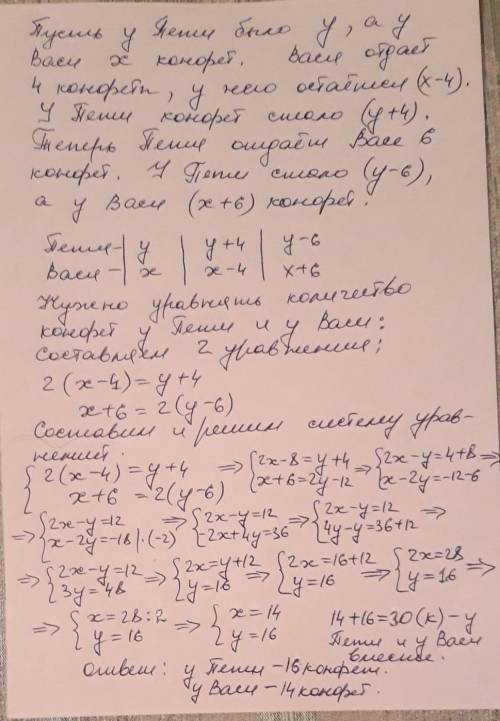 Пусть у Пети было y, а у
Васи x конфет. Вася отдаёт
4 конфеты, у него остаётся (x-4).
У Пети конфет стало (y+4).
Теперь Петя отдаёт Васе 6
конфет. У Пети стало (y-6),
а у Васи (x+6) конфет.
Петя- | y | y+4 | y-6
Вася - | x | x-4 | x+6
Нужно уравнять количество
конфет у Пети и у Васи:
Составляем 2 уравнения;
2(x-4)=y+4
x+6=2(y-6)
Составим и решим систему урав-
нений.
{2(x-4)=y+4 x+6=2(y-6) => {2x-8=y+4 x+6=2y-12 => {2x-y=4+8 x-2y=-12-6 =>
=> {2x-y=12 x-2y=-18 |·(-2) => {2x-y=12 -2x+4y=36 => {2x-y=12 4y-y=36+12 =>
=> {2x-y=12 3y=48 => {2x=y+12 y=16 => {2x=16+12 y=16 => {2x=28 y=16 =>
=> {x=28:2 y=16 => {x=14 y=16 14+16=30(к)-у
Пети и у Васи
вместе.
Ответ: у Пети -16 конфет.
у Васи -14 конфет.